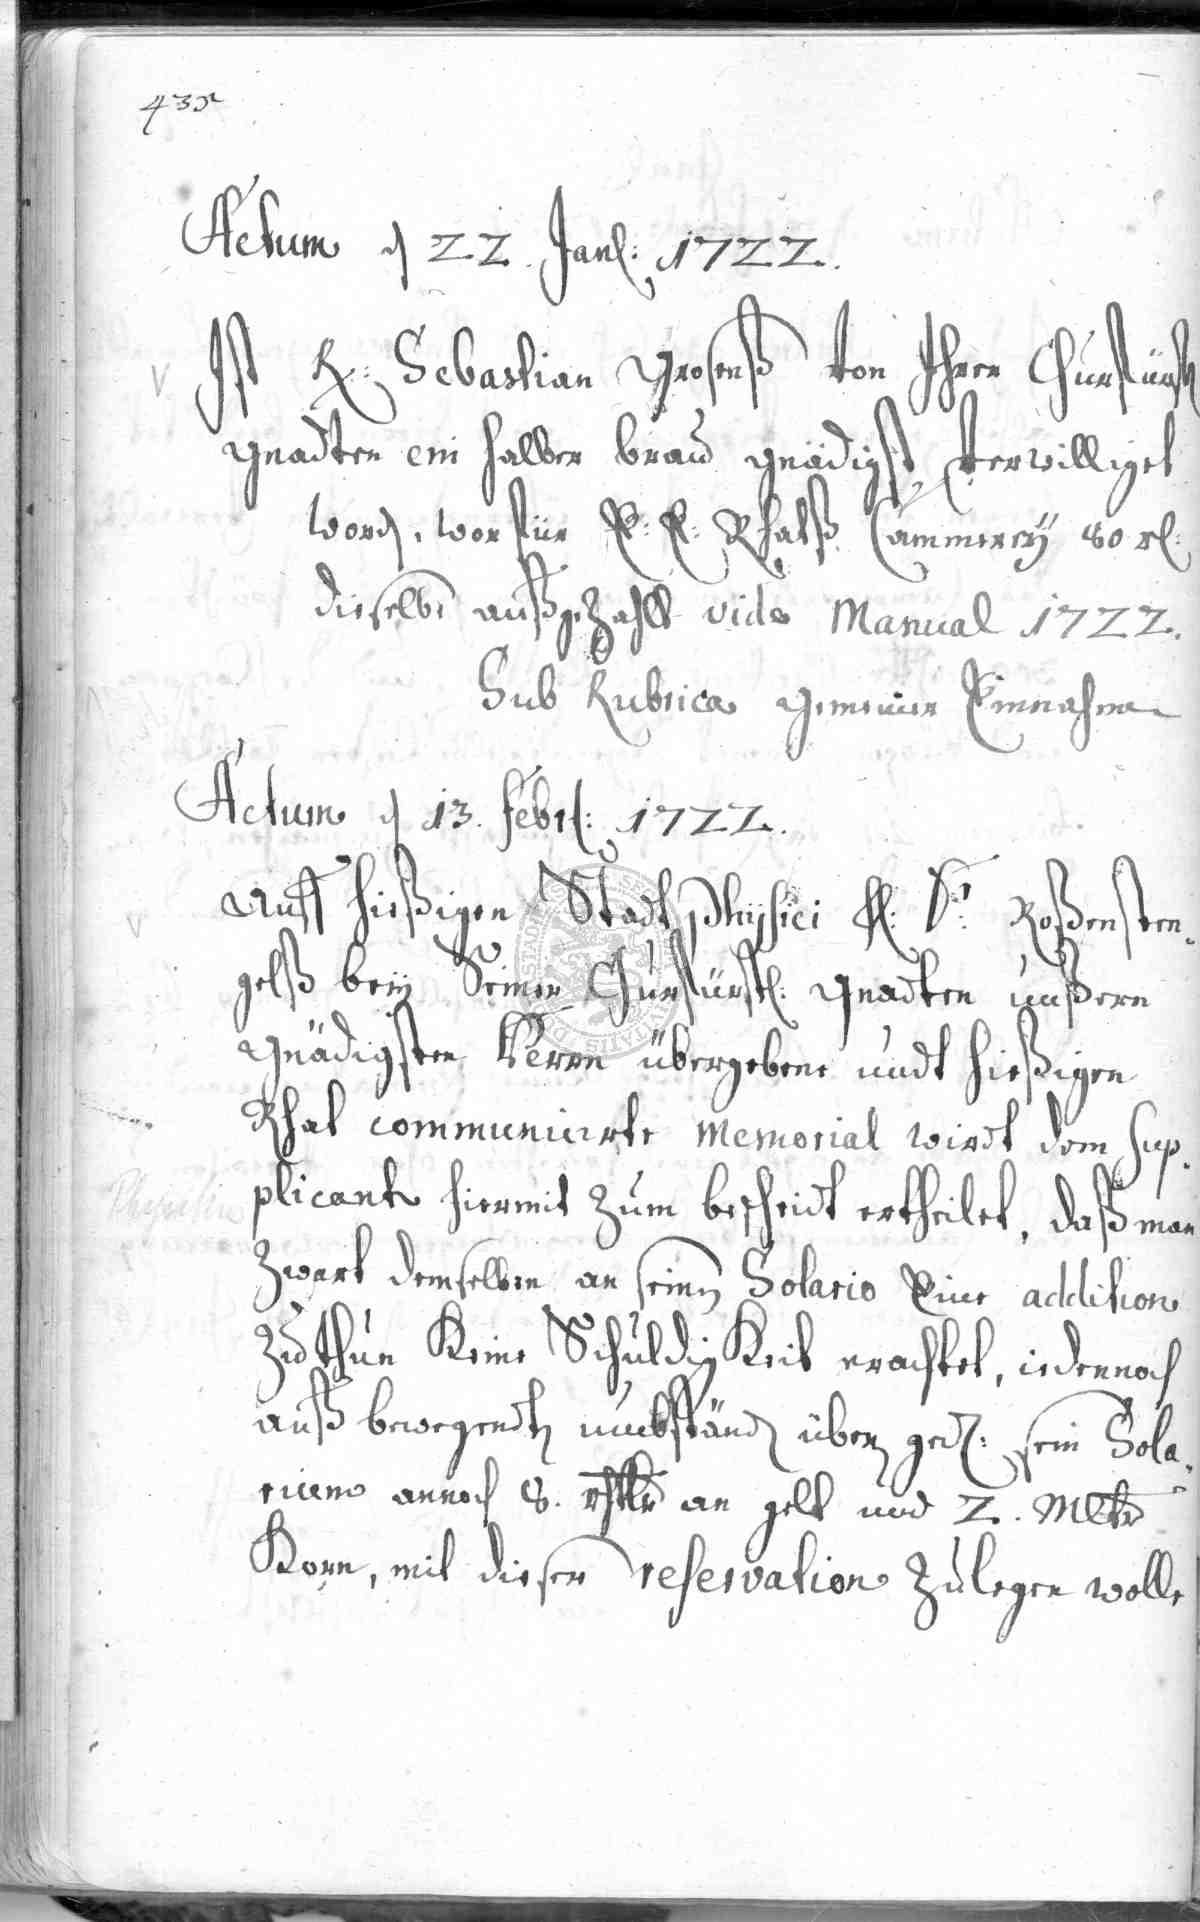 435
Actum d 22. Jan: 1722.
Ist H: Sebastian von Ihrer Churfürstl
gnadten ein halber brau gnädigst verwilliget
word, worfür E: E: Rhatß Cammerey 80 rl:
dieselbe außgezahlt vide Manual 1722.
Sub Rubrica gemeiner Einnahme
Actum d 13. Febr: 1722.
Auff hießigen Stadt Physici H: Dr: Roßensten-
gelß beÿ Seiner Churfürstl: gnadten unßern
gnädigsten Herrn übergebene undt hießigen
Rhat communicirte Memorial wirdt dem Sup-
plicante hiermit zum bescheidt ertheilet, daß man
zwart demselben an seinem Solario Eine addition
zu thun Keine SchuldigKeit erachtet, iedennoch
auß bewegendten umbständ über ged: sein Sola-
rium annoch 8. rthlr an gelt und 2. Mltr
Korn, mit dieser reservation zulegen wolle
Physicus